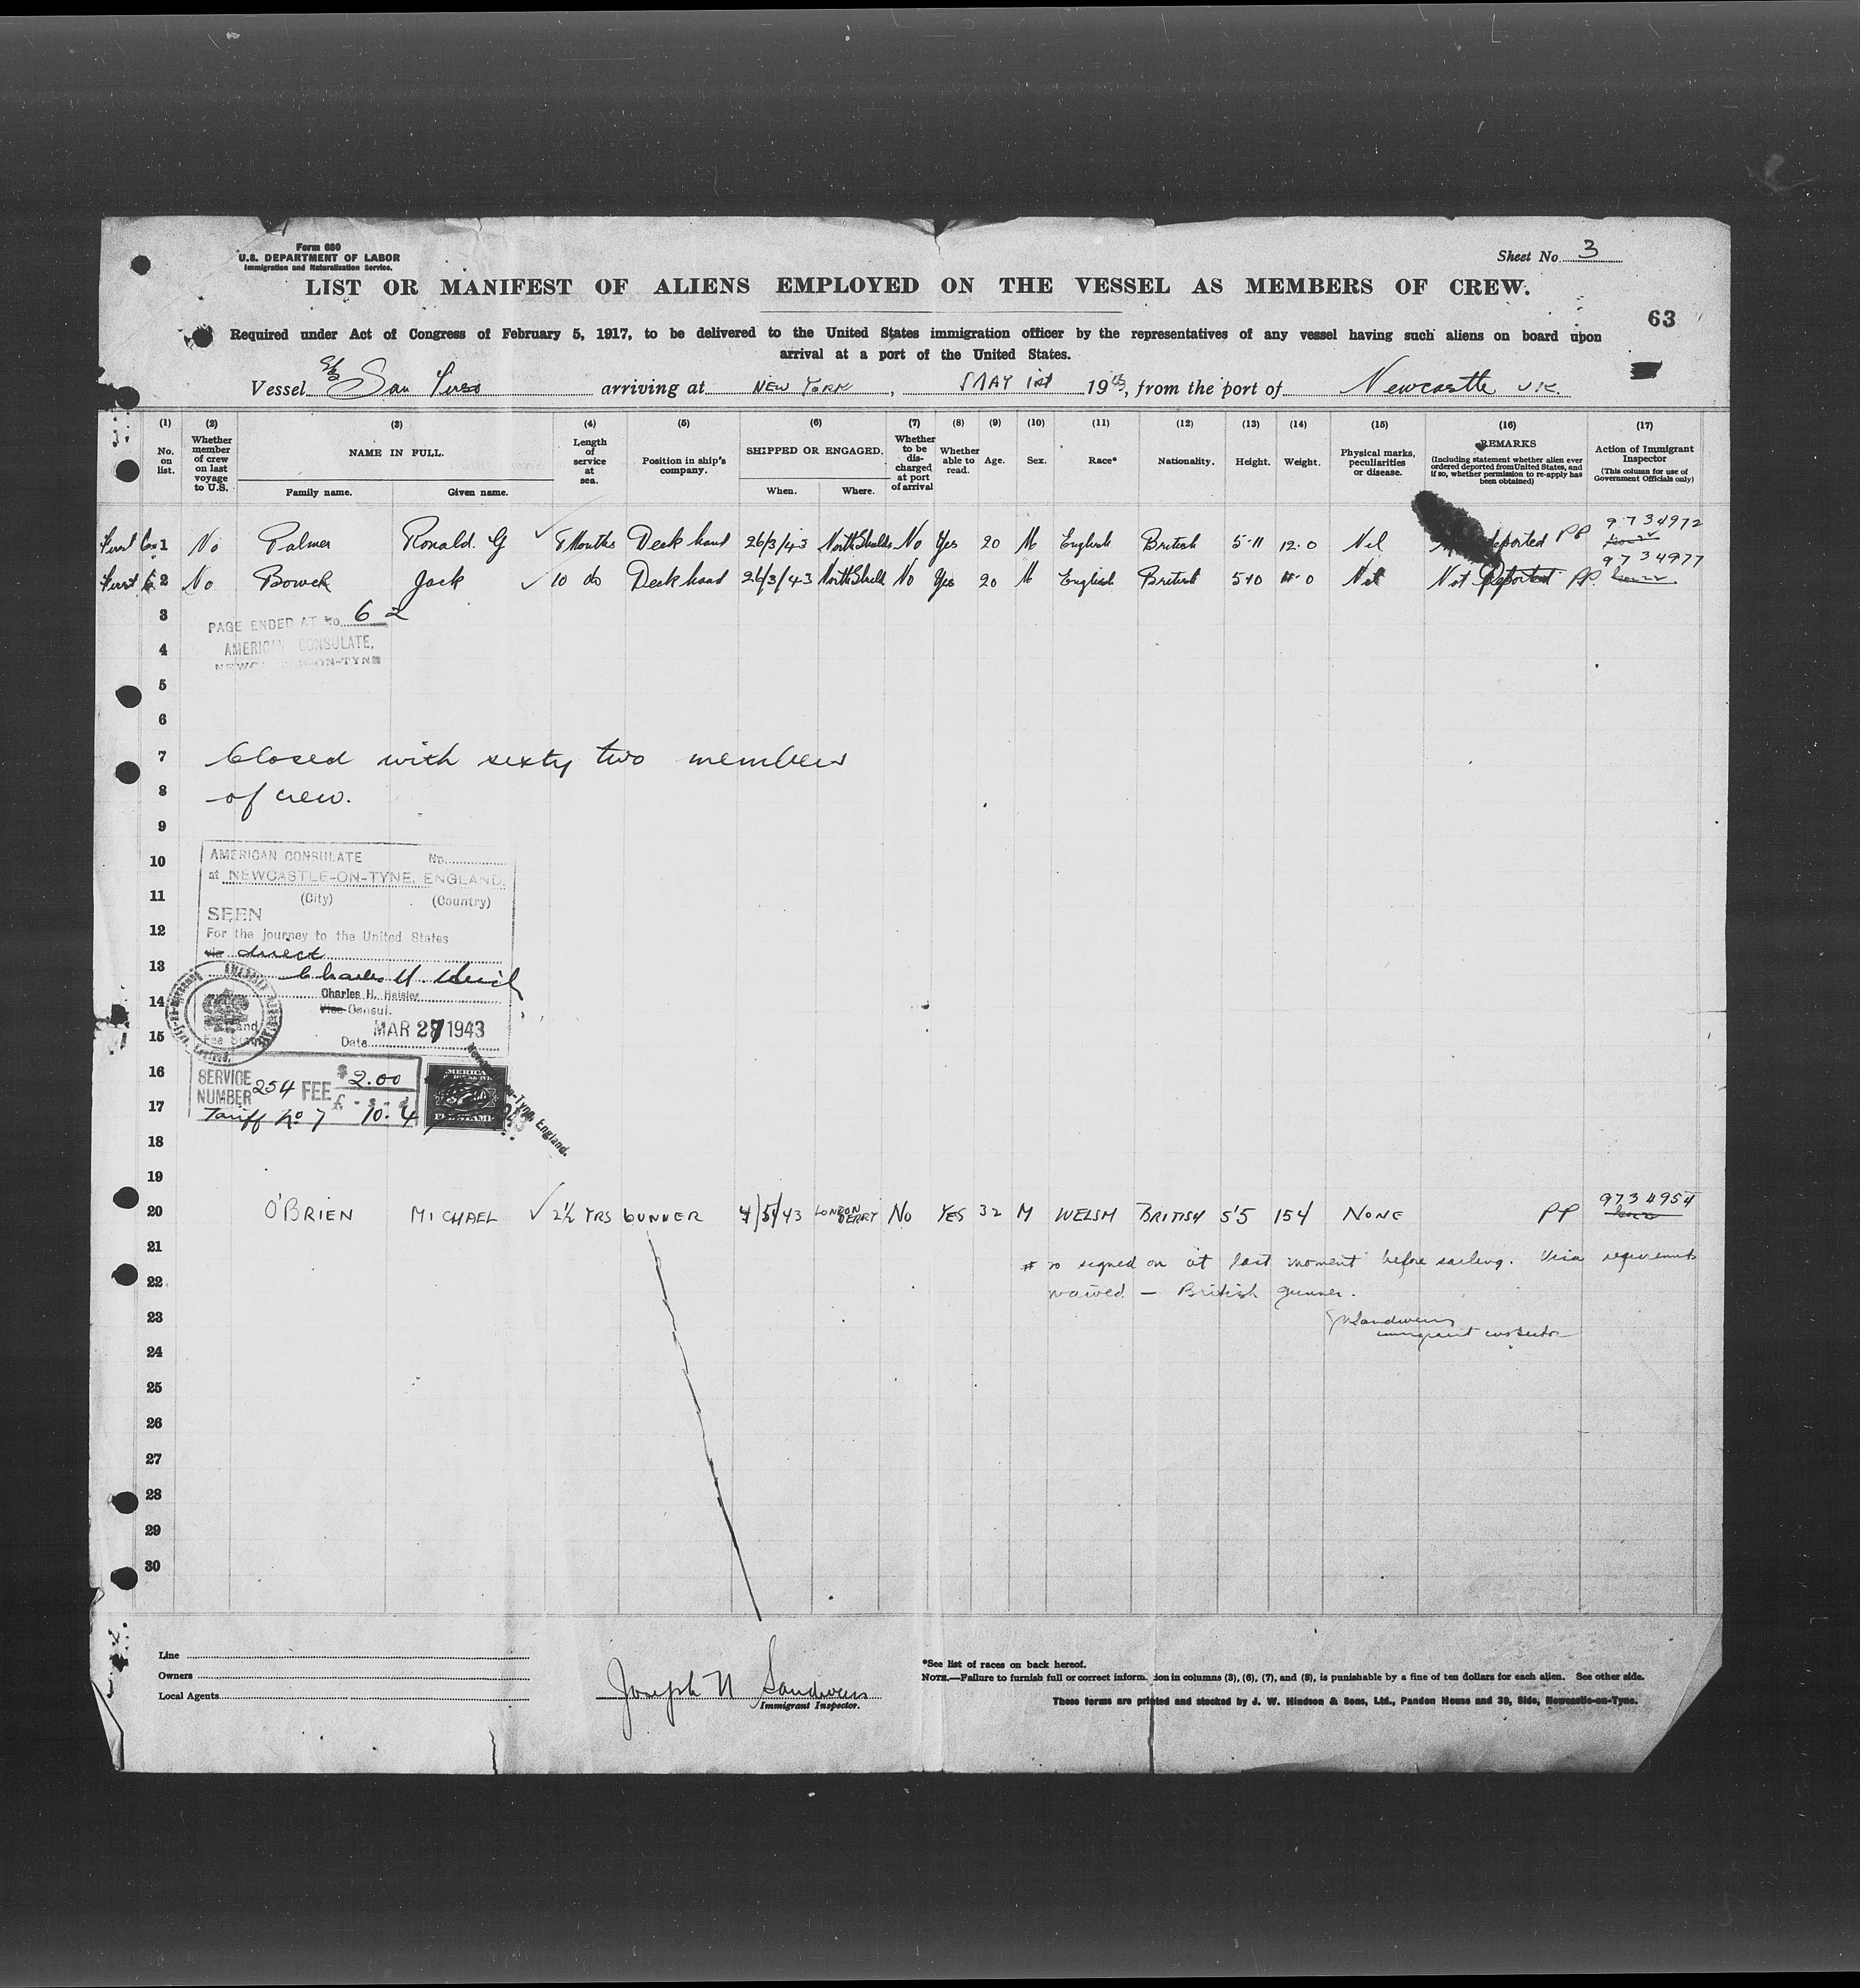 Form 680
U.S. DEPARTMENT OF LABOR
Immigration and Naturalization Service.
Sheet No. 3
LIST OR MANIFEST OF ALIENS EMPLOYED ON THE VESSEL AS MEMBERS OF CREW.
63
Required under Act of Congress of February 5, 1917, to be delivered to the United States immigration officer by the representatives of any vessel having such aliens on board upon
arrival at a port of the United States.
Vessel San arriving at NEW YORK, MAY 1st 1943, from the port of Newcastle U.K.
(1) No. on list.
(2) Whether member of crew on last voyage to U.S.
(3) NAME IN FULL. Family name. Given name.
(4) Length of service at sea.
(5) Position in ship's company.
(6) SHIPPED OR ENGAGED. When. Where.
(7) Whether to be discharged at port of arrival
(8) Whether able to read.
(9) Age.
(10) Sex.
(11) Race*
(12) Nationality.
(13) Height.
(14) Weight.
(15) Physical marks, peculiarities or disease.
(16) REMARKS (Including statement whether alien ever ordered deported from United States, and if so, whether permission to re-apply has been obtained)
(17) Action of Immigrant Inspector (This column for use of Government Officials only)
1 No Palmer Ronald. G Months Deck hand 26/3/43 North Shields No Yes 20 M English British 5-11 12.0 Nil deported PP 9734972
2 No Jack 10 do Deck hand 26/3/43 North Shields No Yes 20 M English British 5-10 Nil Not Deported PP. 9734977
3
PAGE ENDED AT No. 62
4
AMERICAN CONSULATE,
NEWCASTLE-ON-TYNE
5
6
7 Closed with sixty two members
8 of crew.
9
10 AMERICAN CONSULATE No.
at NEWCASTLE-ON-TYNE, ENGLAND.
11 (City) (Country)
SEEN
12 For the journey to the United States
via direct
13
14 Charles H. Heisler
Vice Consul.
15 Date MAR 27 1943
16 SERVICE NUMBER 254 FEE $ 2.00
17 Tariff No 7 £ - s - d 10.4
18
19
20 O'BRIEN MICHAEL 2½ YRS GUNNER 4/5/43 LONDONDERRY NO YES 32 M WELSH BRITISH 5'5 154 NONE PP 9734954
21 signed on at last moment before sailing. Visa requirements
22 waived — British gunner.
23
Immigrant Inspector
24
25
26
27
28
29
30
Line
Owners
Local Agents
Joseph N
Immigrant Inspector.
*See list of races on back hereof.
NOTE.—Failure to furnish full or correct information in columns (3), (6), (7), and (8), is punishable by a fine of ten dollars for each alien. See other side.
These forms are printed and stocked by J. W. Hindson & Sons, Ltd., Pandon House and 39, Side, Newcastle-on-Tyne.